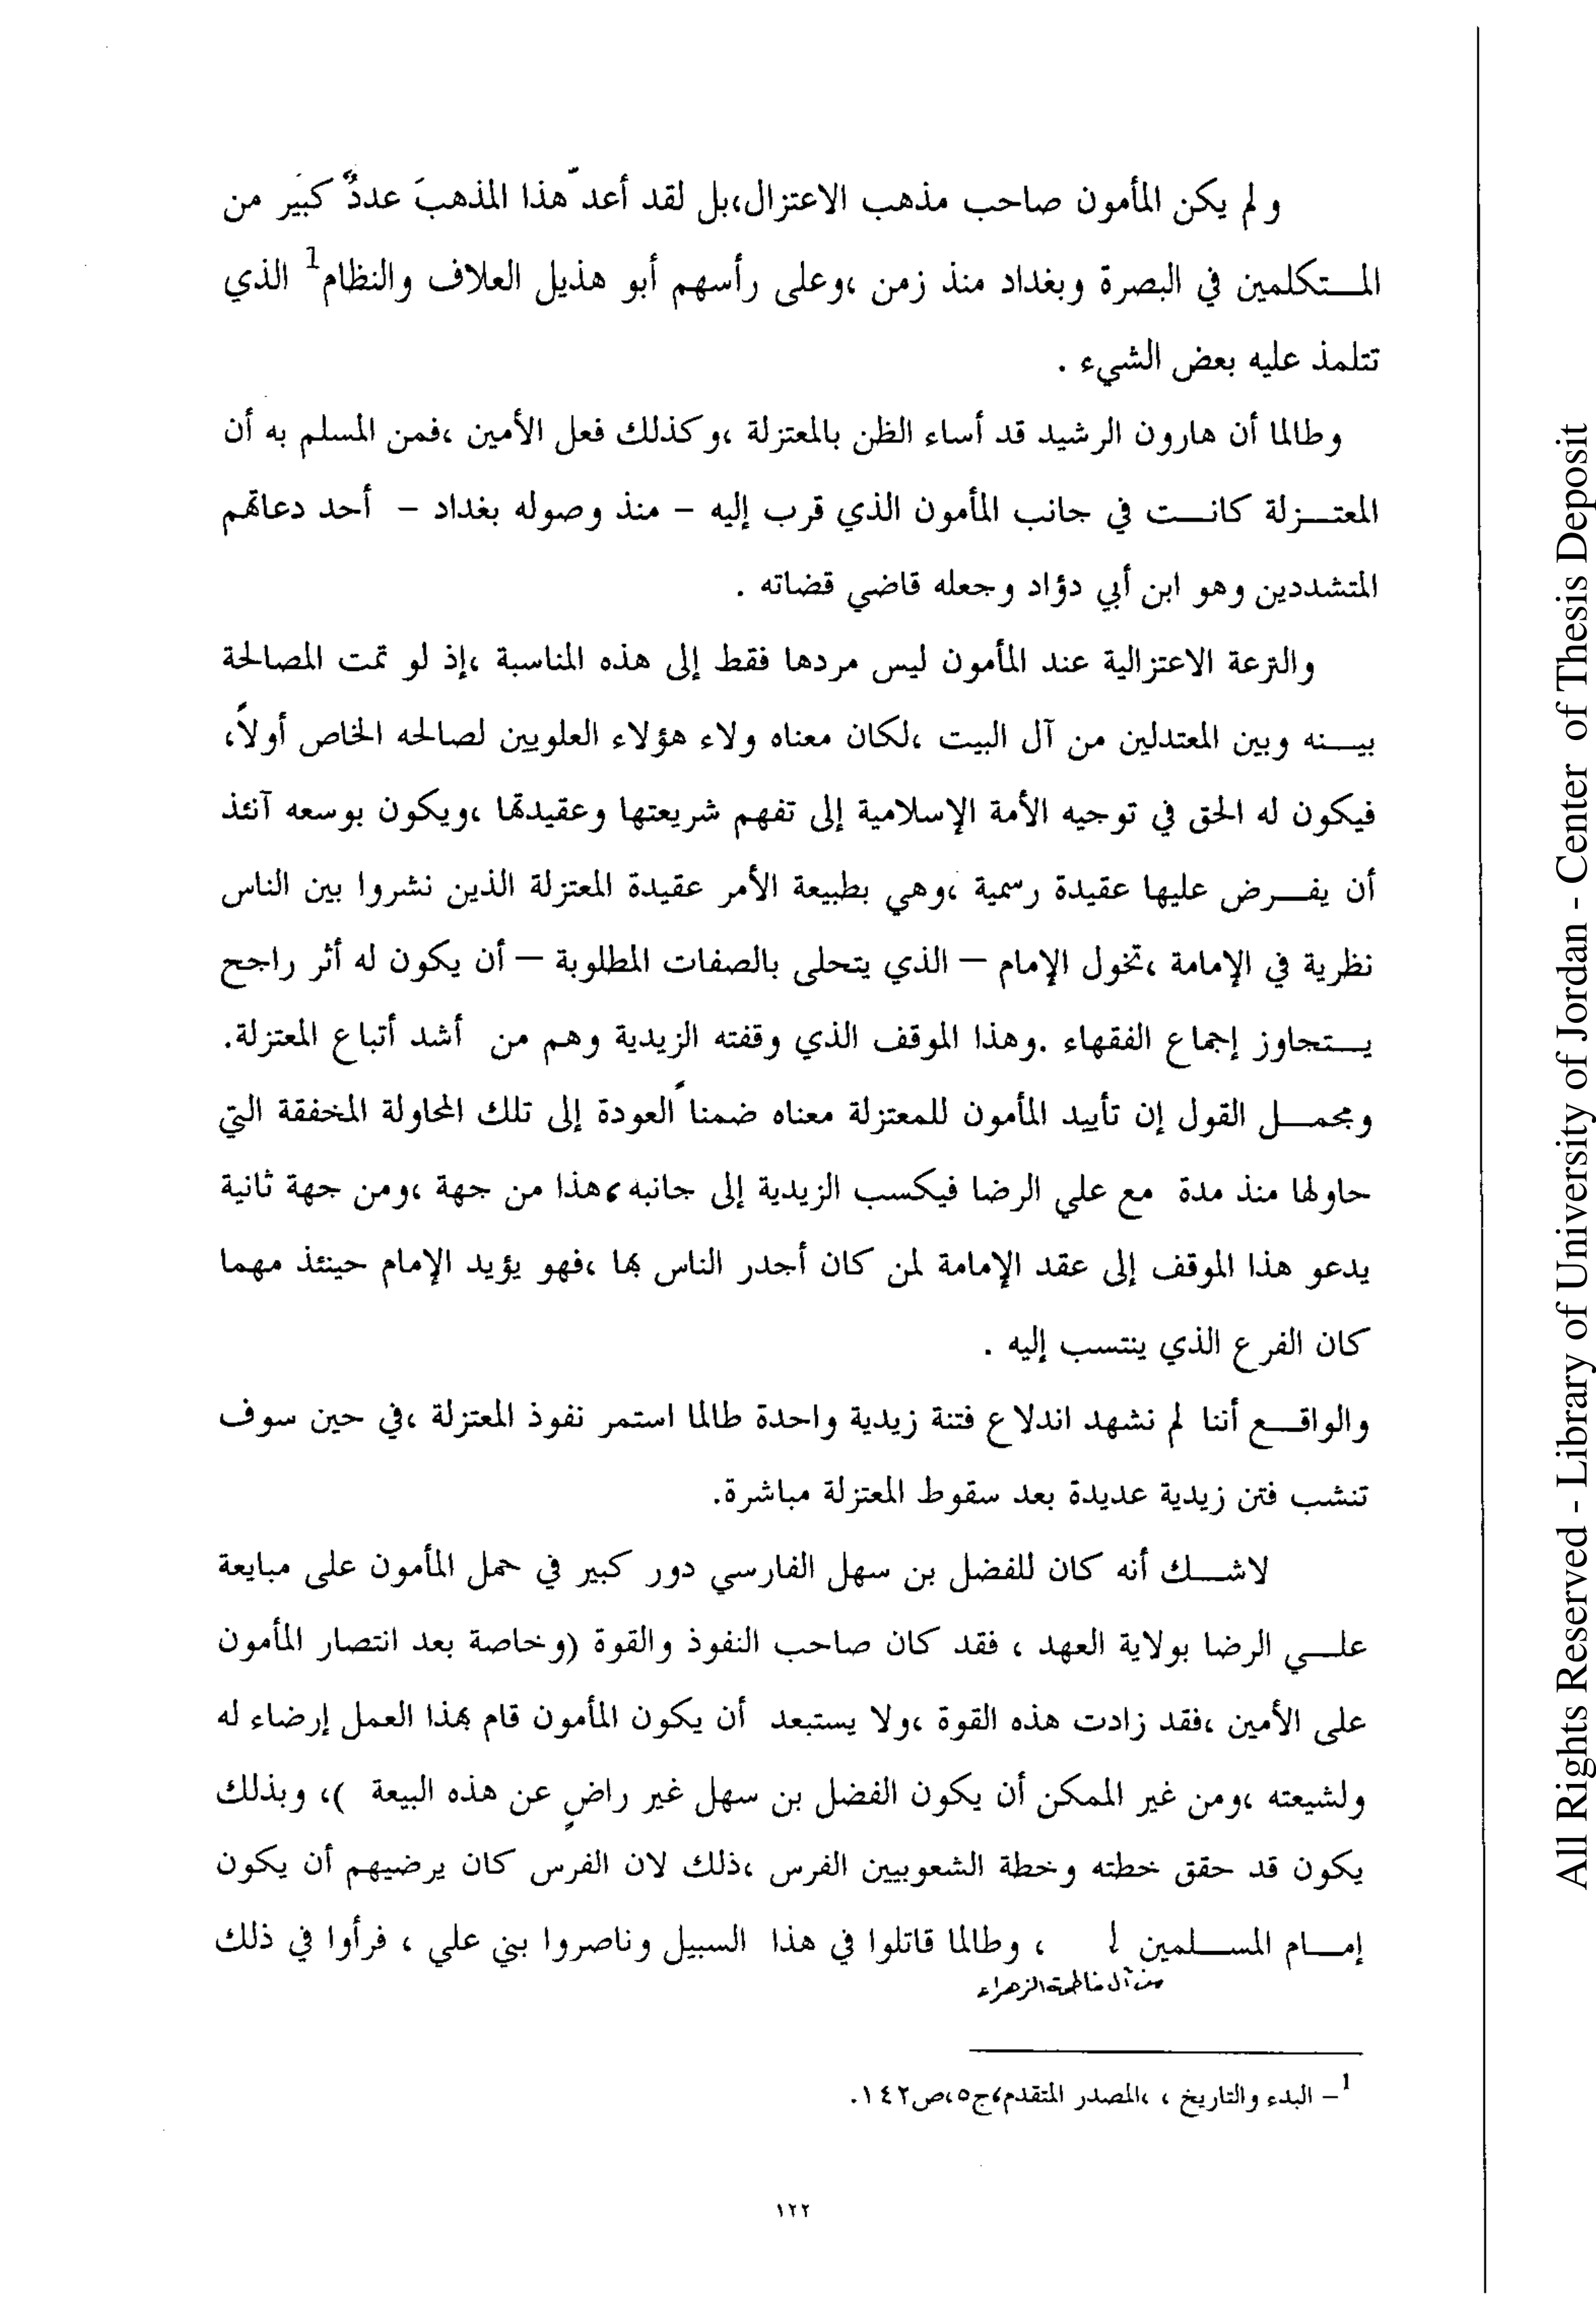 و لم يكن المأمون صاحب مذهب الاعتزال،بل لقد أعدّ هذا المذهبَ عددٌ كبير من
المــتكلمين في البصرة وبغداد منذ زمن ،وعلى رأسهم أبو هذيل العلاف والنظام1 الذي
تتلمذ عليه بعض الشيء .
وطالما أن هارون الرشيد قد أساء الظن بالمعتزلة ،وكذلك فعل الأمين ،فمن المسلم به أن
المعتــزلة كانــت في جانب المأمون الذي قرب إليه – منذ وصوله بغداد – أحد دعاتهم
المتشددين وهو ابن أبي دؤاد وجعله قاضي قضاته .
والنزعة الاعتزالية عند المأمون ليس مردها فقط إلى هذه المناسبة ،إذ لو تمت المصالحة
بيــنه وبين المعتدلين من آل البيت ،لكان معناه ولاء هؤلاء العلويين لصالحه الخاص أولاً،
فيكون له الحق في توجيه الأمة الإسلامية إلى تفهم شريعتها وعقيدتها ،ويكون بوسعه آنئذ
أن يفــرض عليها عقيدة رسمية ،وهي بطبيعة الأمر عقيدة المعتزلة الذين نشروا بين الناس
نظرية في الإمامة ،تخول الإمام – الذي يتحلى بالصفات المطلوبة – أن يكون له أثر راجح
يــتجاوز إجماع الفقهاء .وهذا الموقف الذي وقفته الزيدية وهم من أشد أتباع المعتزلة.
ومجمــل القول إن تأييد المأمون للمعتزلة معناه ضمناً العودة إلى تلك المحاولة المخفقة التي
حاولها منذ مدة مع علي الرضا فيكسب الزيدية إلى جانبه ،هذا من جهة ،ومن جهة ثانية
يدعو هذا الموقف إلى عقد الإمامة لمن كان أجدر الناس بها ،فهو يؤيد الإمام حينئذ مهما
كان الفرع الذي ينتسب إليه .
والواقــع أننا لم نشهد اندلاع فتنة زيدية واحدة طالما استمر نفوذ المعتزلة ،في حين سوف
تنشب فتن زيدية عديدة بعد سقوط المعتزلة مباشرة.
لاشــك أنه كان للفضل بن سهل الفارسي دور كبير في حمل المأمون على مبايعة
علــي الرضا بولاية العهد ، فقد كان صاحب النفوذ والقوة (وخاصة بعد انتصار المأمون
على الأمين ،فقد زادت هذه القوة ،ولا يستبعد أن يكون المأمون قام بهذا العمل إرضاء له
ولشيعته ،ومن غير الممكن أن يكون الفضل بن سهل غير راضٍ عن هذه البيعة )، وبذلك
يكون قد حقق خطته وخطة الشعوبيين الفرس ،ذلك لان الفرس كان يرضيهم أن يكون
إمــام المســلمين ، وطالما قاتلوا في هذا السبيل وناصروا بني علي ، فرأوا في ذلك
من آل فاطمة الزهراء
1– البدء والتاريخ ، ،المصدر المتقدم،ج٥،ص١٤٢.
١٢٢
All Rights Reserved - Library of University of Jordan - Center of Thesis Deposit